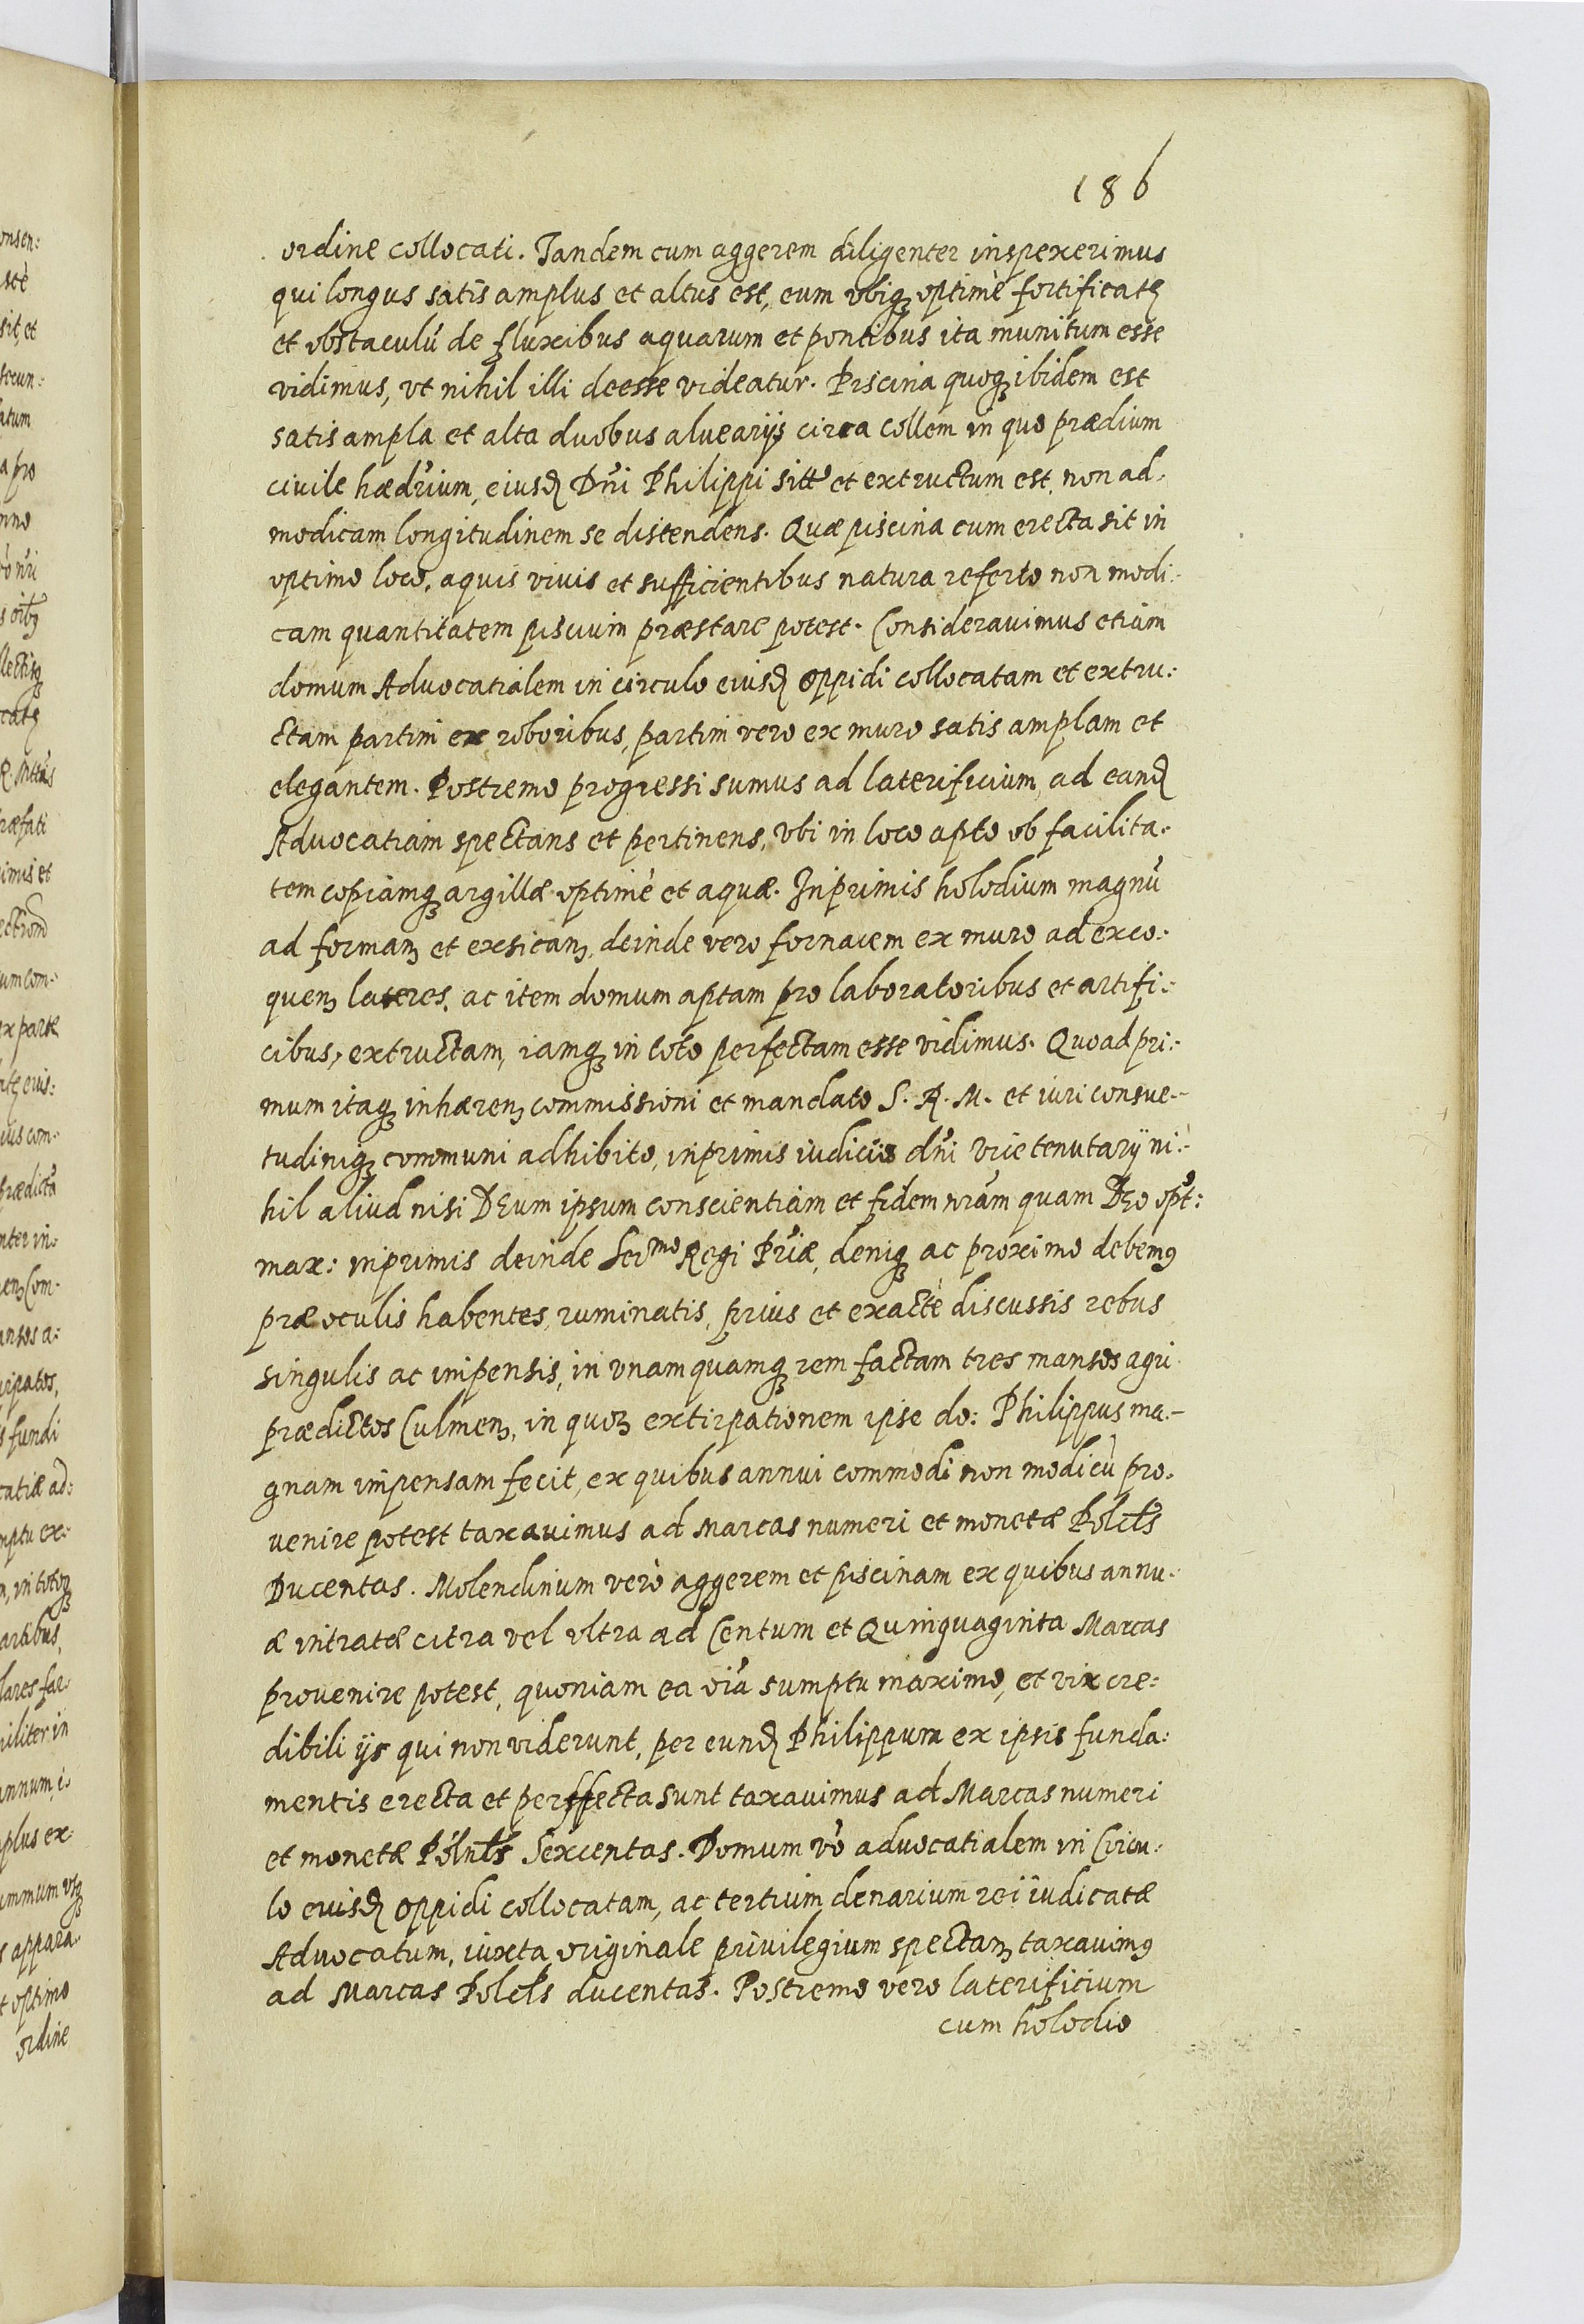 186
ordine collocati. Tandem cum aggerem diligenter inspexerimus
qui longus satis amplus et altus est, eum vbiqꝫ optimè fortificatꝫ
et obstaculũ de fluxibus aquarum et pontibus ita munitum esse
vidimus, vt nihil illi deesse videatur. Piscina quoqꝫ ibidem est
satis ampla et alta duobus aluearijs circa collem in quo prædium
ciuile hæd'rium, eiusd Dñi Philippi sitũ et extructum est, non ad-
modicam longitudinem se distendens. Quæ piscina cum erecta sit in
optimo loco, aquis viuis et sufficientibus natura referto non modi-
cam quantitatem piscium præstare potest. Consideravimus etiam
domum Advocatialem in circulo eiusd oppidi collocatam et extru:
ctam partim ex roboribus, partim vero ex muro satis amplam et
elegantem. Postremo progressi sumus ad laterificium, ad eand
Advocatiam spectans et pertinens, vbi in loco apto ob facilita-
tem copiamqꝫ argillæ optimè et aquæ. Inprimis holodium magnũ
ad formanꝫ et exsicanꝫ, deinde vero fornacem ex muro ad exco-
quenꝫ lateres, ac item domum aptam pro laboratoribus et artifi-
cibus, extructam, iamqꝫ in toto perfectam esse vidimus. Quoad pri-
mum itaqꝫ inhærenꝫ commissioni et mandato S. R. M. et iuri consue-
tudiniqꝫ communi adhibito, inprimis iudicio dñi vicetenutarij ni-
hil aliud nisi DEum ipsum conscientiam et fidem nr̃am quam DEo opt:
max: inprimis deinde Ser^mo Regi Pr̃iæ, deniqꝫ ac proximo debemꝰ
præ oculis habentes, ruminatis, prius et exactè discussis rebus
singulis ac impensis, in vnamquamqꝫ rem factam tres mansos agri
prædictos Culmenꝫ, in quoꝫ extirpationem ipse do: Philippus ma-
gnam impensam fecit, ex quibus annui commodi non modicũ pro-
uenire potest taxauimus ad Marcas numeri et monetæ Polcls
Ducentas. Molendinum verò aggerem et piscinam ex quibus annu-
æ intratæ citra vel vltra ad Centum et Quinquaginta Marcas
prouenire potest, quoniam ea oĩa sumptu maximo, et vix cre-
dibili ijs qui non viderunt, per eund Philippum ex ipsis funda:
mentis erecta et perffecta sunt taxauimus ad Marcas numeri
et monetæ Polnls Sexcentas. Domum vò advocatialem in Circu-
lo eiusd oppidi collocatam, ac tertium denarium rei iudicatæ
Advocatum, iuxta originale privilegium spectanꝫ taxauimꝰ
ad Marcas Polcls ducentas. Postremo vero laterificium
cum holodio